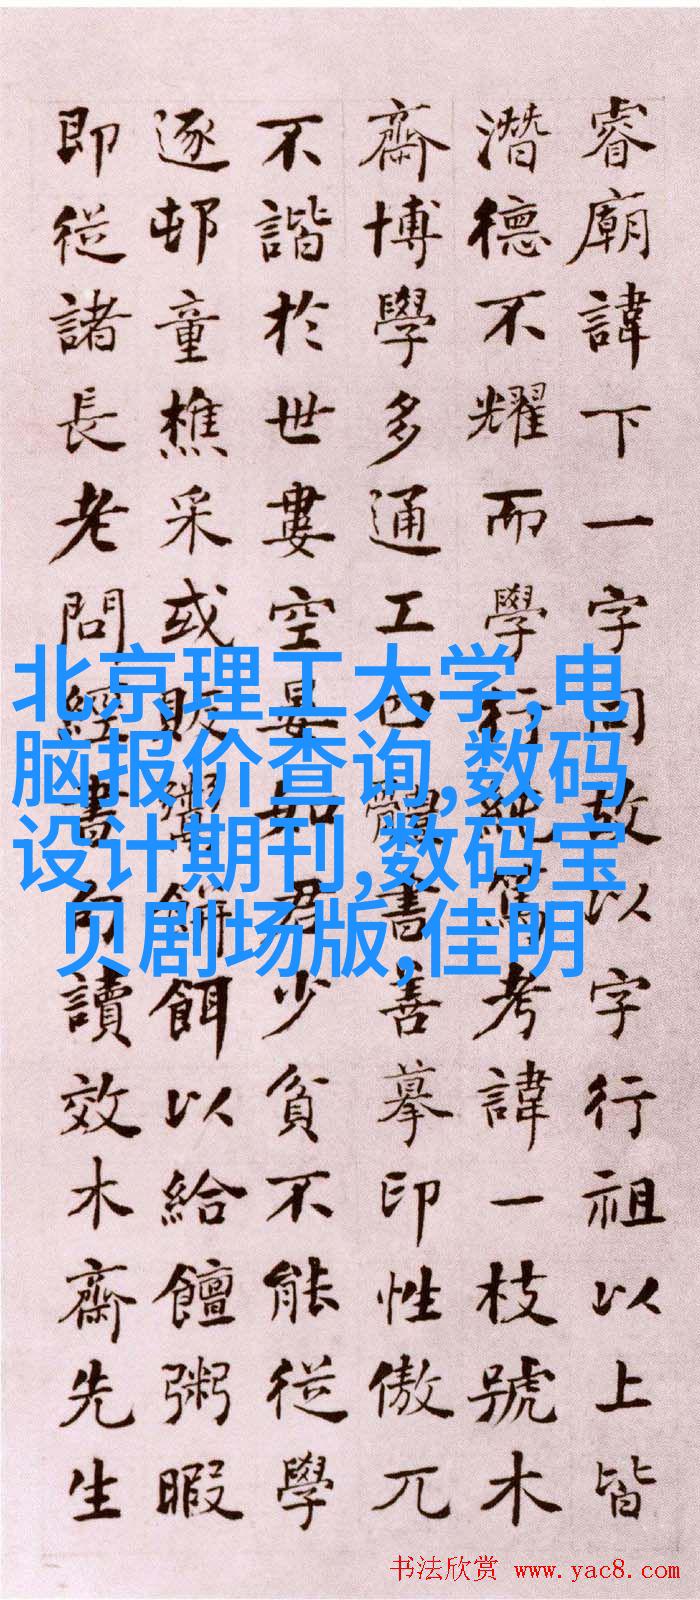 睿廟諱下一字同故以字行祖以上皆
潛德不耀而學行純篤考諱一枝號木
齋博學多通工四體書善摹印性傲兀
不諧於世婁空晏如君少貧不能從學
逐邨童樵采或販鬻餅餌以給饘粥暇
即從諸長老問經書句讀效木齋先生
北京理工大学,电
脑报价查询,数码
设计期刊,数码宝
贝剧场版,佳明
书法欣赏 www.yac8.com